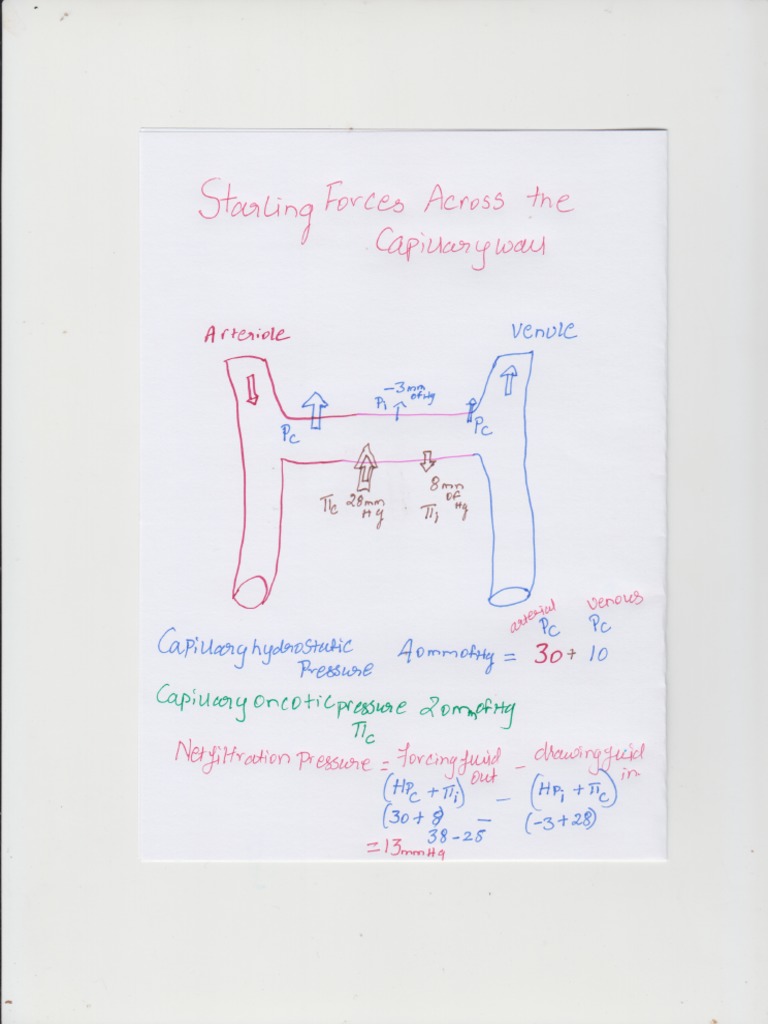 Starling Forces Across the
Capillary wall
Arteriole
Venule
-3mm
of Hg
Pi
Pc
Pc
πc 28mm
Hg
8mm
of
Hg
πi
arterial venous
Pc Pc
Capillary hydrostatic
Pressure 40mmofHg = 30 + 10
Capillary oncotic pressure 20mmofHg
πc
Net filtration Pressure = forcing fluid
out - drawing fluid
in
(HPc + πi) - (HPi + πc)
(30 + 8) - (-3 + 28)
38 - 25
= 13 mmHg